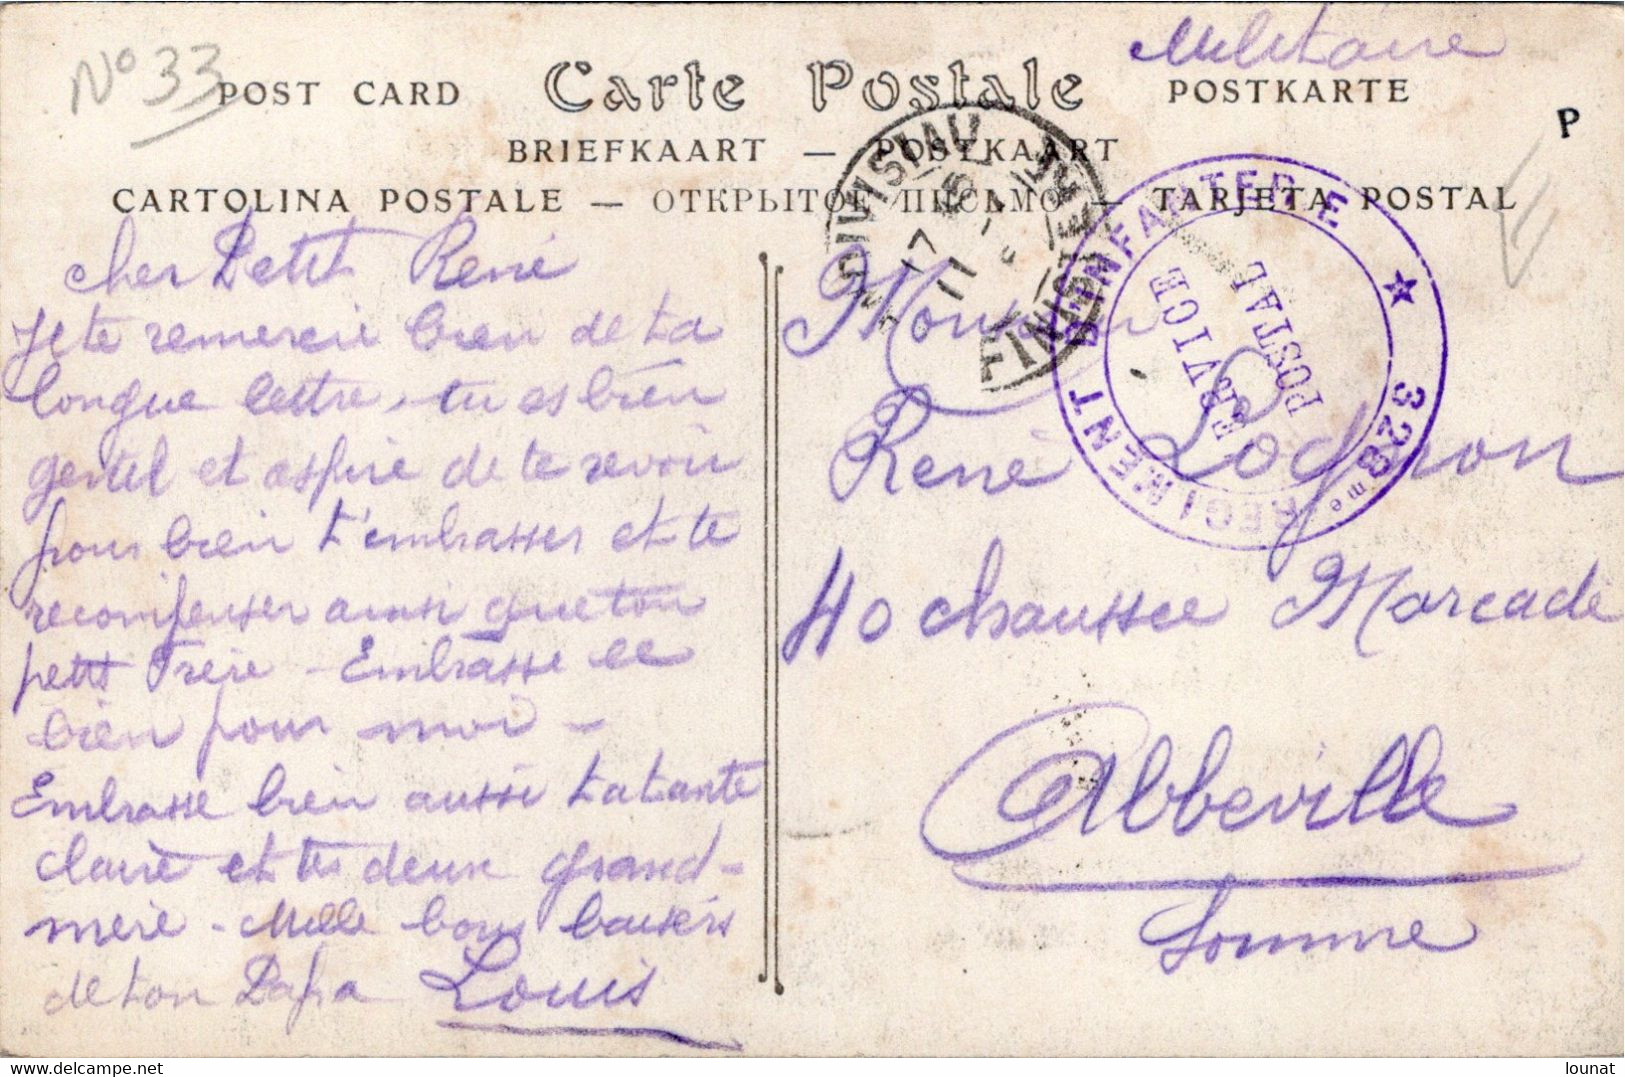 N° 33
Militaire
POST CARD Carte Postale POSTKARTE
P
BRIEFKAART — POSTKAART
CARTOLINA POSTALE — ОТКРЫТОЕ ПИСЬМО — TARJETA POSTAL
Cher Petit René
Je te remercie bien de ta
longue lettre, tu es bien
gentil et aspire de te revoir
pour bien t'embrasser et te
recompenser ainsi que ton
petit frère - Embrasse le
bien pour moi -
Embrasse bien aussi ta tante
Claire et tes deux grand-
mère - Mille bons baisers
de ton Papa Louis
17
11
FINIST
REGIMENT D'INFANTERIE ★ 328me
SERVICE
POSTAL
René
40 chaussee Marcadé
Abbeville
Somme
https://www.delcampe.net
lounat